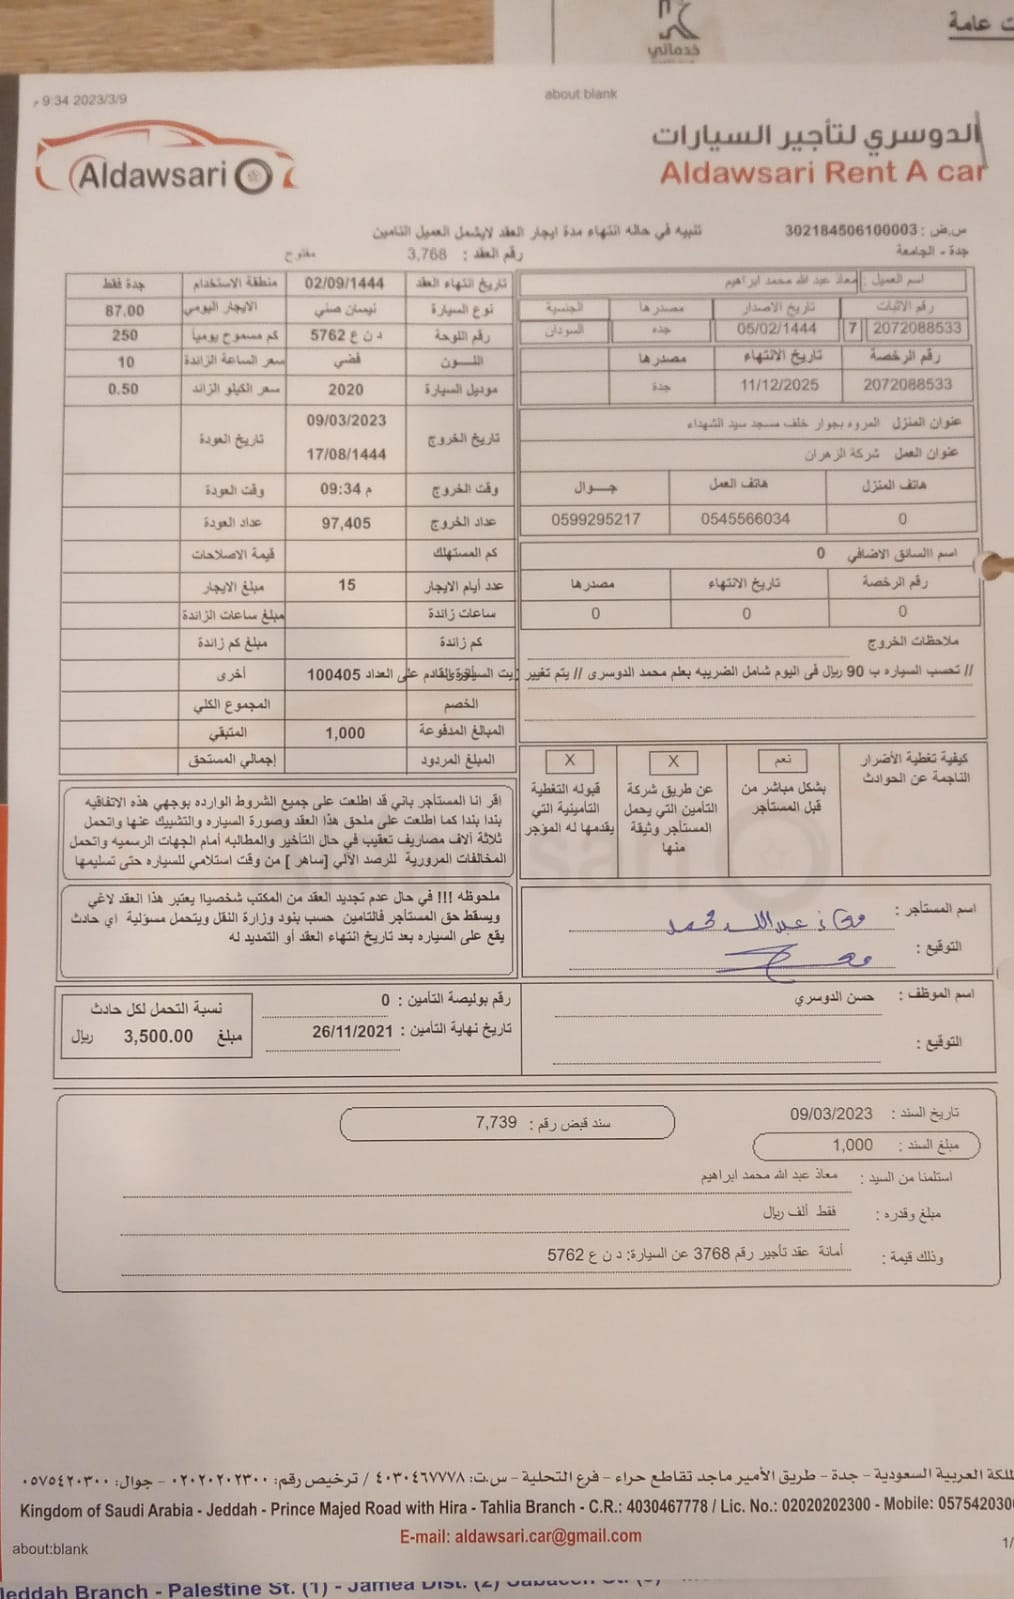 ت عامة
خدماتي
9:34 2023/3/9 م
about:blank
Aldawsari
الدوسري لتأجير السيارات
Aldawsari Rent A car
س.ض : 302184506100003
تنبيه في حاله انتهاء مدة ايجار العقد لايشمل العميل التامين
جدة - الجامعة
رقم العقد : 3,768
مفتوح
اسم العميل : معاذ عبد الله محمد ابراهيم
رقم الاثبات تاريخ الاصدار مصدرها الجنسية
2072088533 7 05/02/1444 جده السودان
رقم الرخصة تاريخ الانتهاء مصدرها
2072088533 11/12/2025 جدة
عنوان المنزل المروه بجوار خلف مسجد سيد الشهداء
عنوان العمل شركة الزهران
هاتف المنزل هاتف العمل جـــوال
0 0545566034 0599295217
اسم السائق الاضافي 0
رقم الرخصة تاريخ الانتهاء مصدرها
0 0 0
ملاحظات الخروج
// تحسب السياره ب 90 ريال في اليوم شامل الضريبه بعلم محمد الدوسري // يتم تغيير زيت السيارة القادم على العداد 100405
تاريخ انتهاء العقد 02/09/1444 منطقة الاستخدام جدة فقط
نوع السيارة نيسان صني الايجار اليومي 87.00
رقم اللوحة د ن ع 5762 كم مسموح يومياً 250
اللـــون فضي سعر الساعة الزائدة 10
موديل السيارة 2020 سعر الكيلو الزائد 0.50
تاريخ الخروج 09/03/2023 17/08/1444 تاريخ العودة
وقت الخروج 09:34 م وقت العودة
عداد الخروج 97,405 عداد العودة
كم المستهلك قيمة الاصلاحات
عدد أيام الايجار 15 مبلغ الايجار
ساعات زائدة مبلغ ساعات الزائدة
كم زائدة مبلغ كم زائدة
أخرى
الخصم المجموع الكلي
المبالغ المدفوعة 1,000 المتبقي
المبلغ المردود إجمالي المستحق
كيفية تغطية الأضرار الناجمة عن الحوادث
نعم
بشكل مباشر من قبل المستأجر
X
عن طريق شركة التأمين التي يحمل المستأجر وثيقة منها
X
قبوله التغطية التأمينية التي يقدمها له المؤجر
اقر انا المستأجر باني قد اطلعت على جميع الشروط الوارده بوجهي هذه الاتفاقيه
بندا بندا كما اطلعت على ملحق هذا العقد وصورة السياره والتشييك عنها واتحمل
ثلاثة آلاف مصاريف تعقيب في حال التأخير والمطالبه أمام الجهات الرسميه واتحمل
المخالفات المرورية للرصد الآلي [ساهر ] من وقت استلامي للسياره حتى تسليمها
ملحوظه !!! في حال عدم تجديد العقد من المكتب شخصياا يعتبر هذا العقد لاغي
ويسقط حق المستأجر فالتامين حسب بنود وزارة النقل ويتحمل مسؤلية اي حادث
يقع على السياره بعد تاريخ انتهاء العقد أو التمديد له
اسم المستأجر : معاذ عبدالله محمد
التوقيع :
اسم الموظف : حسن الدوسري
التوقيع :
رقم بوليصة التأمين : 0
تاريخ نهاية التأمين : 26/11/2021
نسبة التحمل لكل حادث
مبلغ 3,500.00 ريال
تاريخ السند : 09/03/2023
سند قبض رقم : 7,739
مبلغ السند : 1,000
استلمنا من السيد : معاذ عبد الله محمد ابراهيم
مبلغ وقدره : فقط ألف ريال
وذلك قيمة : أمانة عقد تأجير رقم 3768 عن السيارة: د ن ع 5762
لكة العربية السعودية - جدة - طريق الأمير ماجد تقاطع حراء - فرع التحلية - س.ت: ٤٠٣٠٤٦٧٧٧٨ / ترخيص رقم: ٠٢٠٢٠٢٠٢٣٠٠ - جوال: ٠٥٧٥٤٢٠٣٠٠
Kingdom of Saudi Arabia - Jeddah - Prince Majed Road with Hira - Tahlia Branch - C.R.: 4030467778 / Lic. No.: 02020202300 - Mobile: 0575420300
E-mail: aldawsari.car@gmail.com
about:blank
1/
Jeddah Branch - Palestine St. (1) - Jamea Dist. (2)